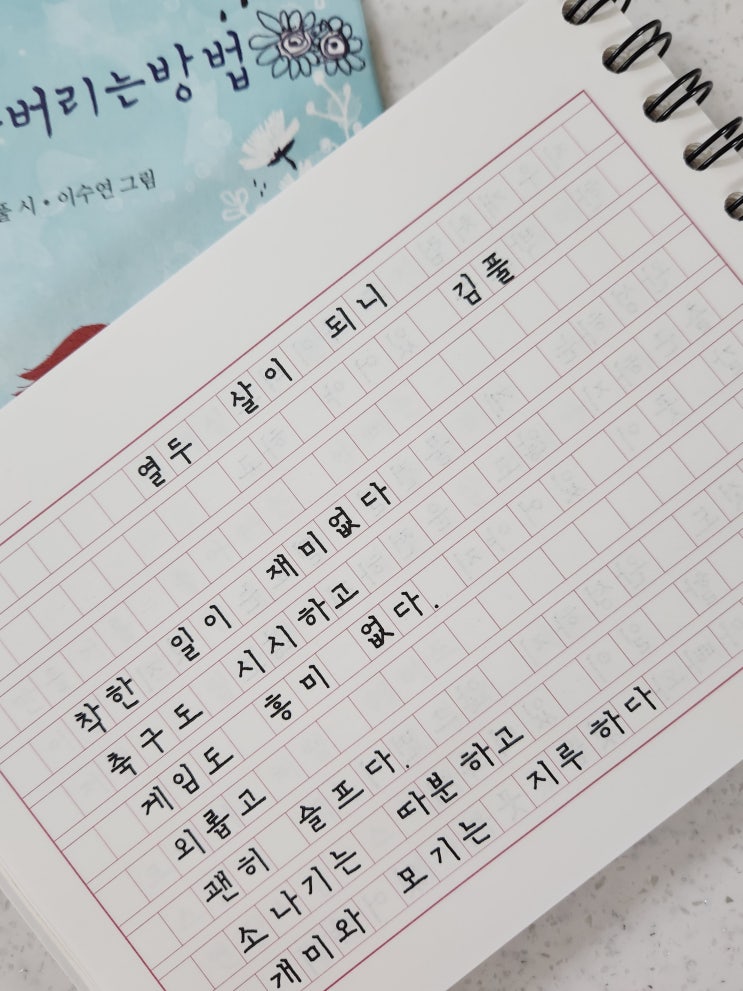 버리는방법
풀 시 • 이수연 그림
열두 살이 되니
김풀
착한 일이 재미없다
축구도 시시하고
게임도 흥미 없다.
외롭고
괜히 슬프다.
소나기는 따분하고
개미와 모기는 지루하다